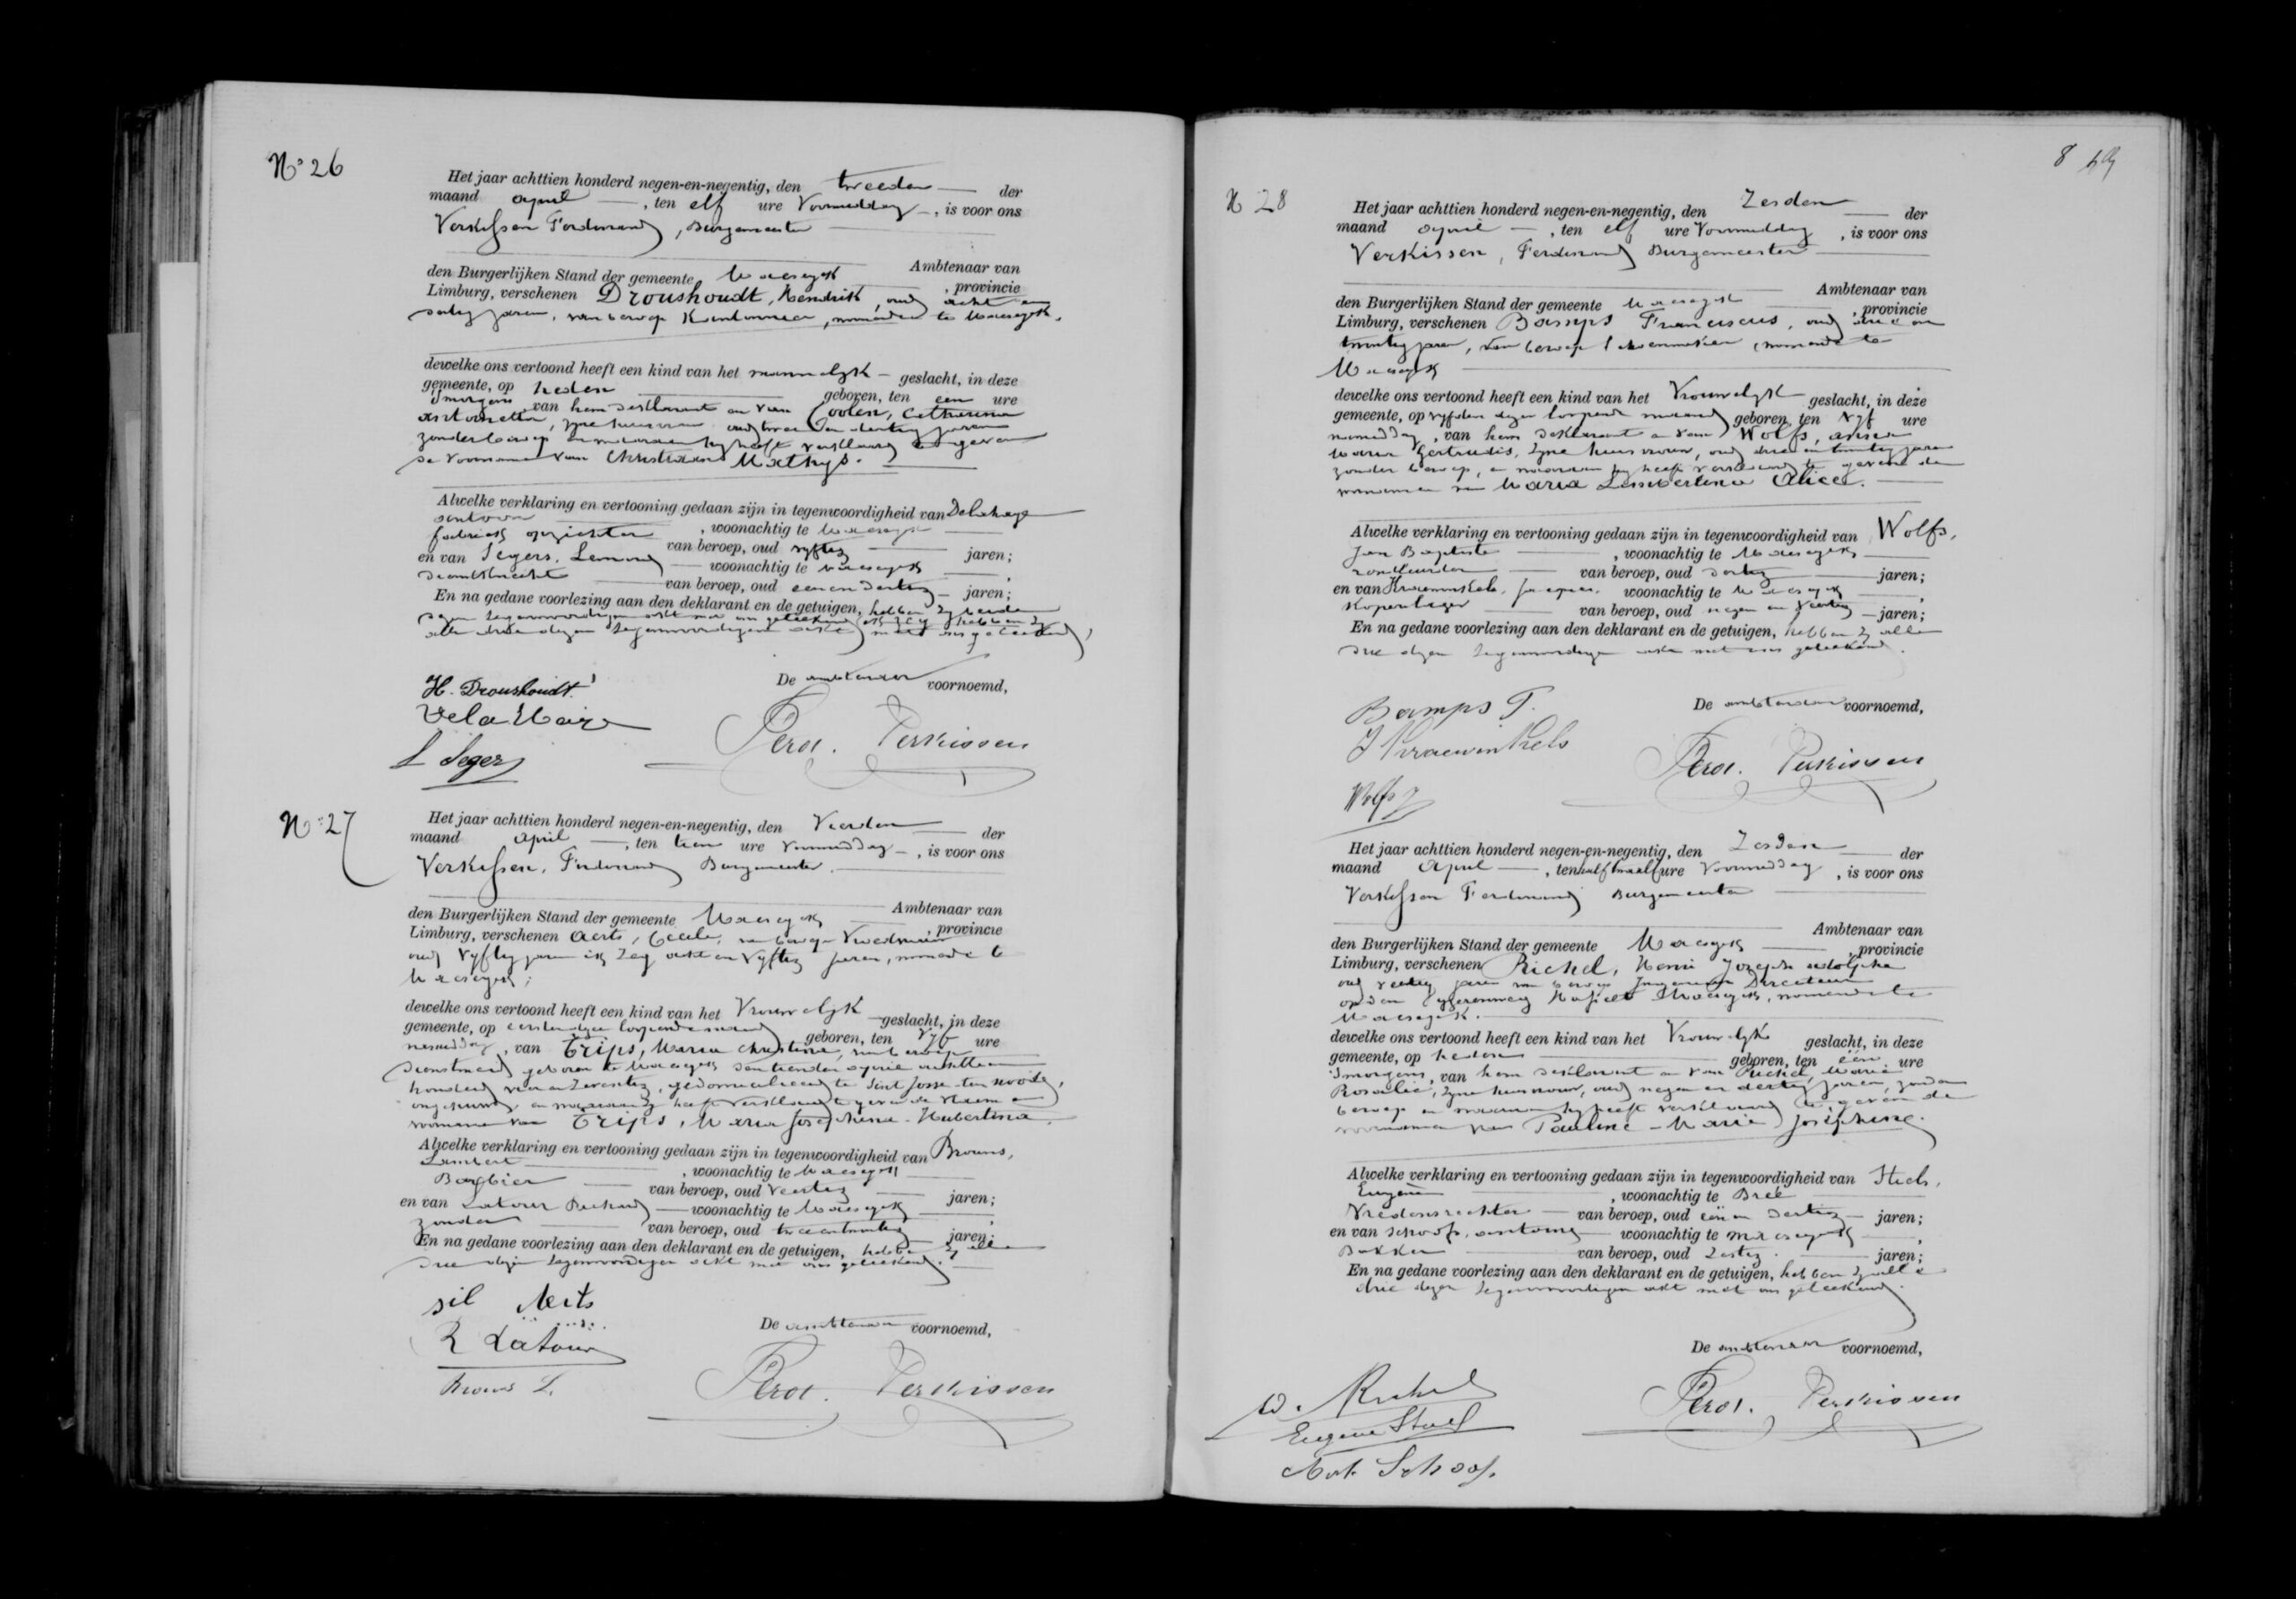 N° 26
Het jaar achttien honderd negen-en-negentig, den tweeden der
maand april, ten elf ure Voormiddag, is voor ons
Verkissen Ferdinand, Burgemeester
Ambtenaar van
den Burgerlijken Stand der gemeente Maeseyck, provincie
Limburg, verschenen Droushoudt, Hendrik, oud acht en
dertig jaren, van beroep Kantonnier, wonende te Maeseyck.
dewelke ons vertoond heeft een kind van het mannelyk geslacht, in deze
gemeente, op heden geboren, ten een ure
'smorgens, van hem deklarant en van Coolen, Catharina
antonetta, zyne huisvrouw oud twee en dertig jaren
zonder beroep en waaraan hy heeft verklaard te geven
de voornamen van Christiaan Mathys.
Alwelke verklaring en vertooning gedaan zijn in tegenwoordigheid van Delahaye
antoon, woonachtig te Maeseyck
fabriek opzichter van beroep, oud vyftig jaren;
en van Segers, Leonard woonachtig te Maeseyck,
van beroep, oud een en dertig jaren;
En na gedane voorlezing aan den deklarant en de getuigen, hebben zy beiden
dezen tegenwoordigen akt met ons geteekend hebben zy
alle drie dezen tegenwoordigen akt met ons geteekend,
De ambtenaar voornoemd,
H. Droushoudt
Delahaije
L Seger
Ferd. Verkissen
N° 27
Het jaar achttien honderd negen-en-negentig, den Vierden der
maand april, ten tien ure Voormiddag, is voor ons
Verkissen, Ferdinand Burgemeester.
Ambtenaar van
den Burgerlijken Stand der gemeente Maeseyck, provincie
Limburg, verschenen Aerts, Cecile, van beroep Vroedvrouw
oud Vyftig jaren ik zeg acht en Vyftig jaren, wonende te
Maeseyck;
dewelke ons vertoond heeft een kind van het Vrouwelyk geslacht, in deze
gemeente, op eersten dezer loopende maand geboren, ten Vyf ure
namiddag, van Trips, Maria Christina, van beroep
Dienstmeid geboren te Maeseyck den tienden april achttien
honderd vier en zeventig, gedomicilieerd te Sint Josse-ten-noode,
ongehuwd, en waaraan zy heeft verklaard te geven de naam en
voornamen van Trips, Maria Josephina-Hubertina.
Alwelke verklaring en vertooning gedaan zijn in tegenwoordigheid van Brouns,
Lambert, woonachtig te Maeseyck
Barbier van beroep, oud Veertig jaren;
en van Latour Richard woonachtig te Maeseyck,
zonder van beroep, oud twee en twintig jaren;
En na gedane voorlezing aan den deklarant en de getuigen, hebben zy alle
drie dezen tegenwoordigen akt met ons geteekend.
De ambtenaar voornoemd,
sil Aerts
R Latour
Brouns L.
Ferd. Verkissen
8
N 28
Het jaar achttien honderd negen-en-negentig, den Zesden der
maand april, ten elf ure Voormiddag, is voor ons
Verkissen, Ferdinand Burgemeester
Ambtenaar van
den Burgerlijken Stand der gemeente Maeseyck, provincie
Limburg, verschenen Bamps Franciscus, oud drie en
twintig jaren, van beroep Schoenmaker, wonende te
Maeseyck
dewelke ons vertoond heeft een kind van het Vrouwelyk geslacht, in deze
gemeente, op vyfden dezer loopende maand geboren, ten Vyf ure
namiddag, van hem deklarant en van Wolfs, anna
Maria Gertrudis, zyne huisvrouw, oud drie en twintig jaren
zonder beroep, en waaraan hy heeft verklaard te geven de
voornamen van Maria Lambertina Alice.
Alwelke verklaring en vertooning gedaan zijn in tegenwoordigheid van Wolfs,
Jan Baptiste, woonachtig te Maeseyck
van beroep, oud dertig jaren;
en van Kraewinkels, Jacques, woonachtig te Maeseyck,
Koperslager van beroep, oud negen en Veertig jaren;
En na gedane voorlezing aan den deklarant en de getuigen, hebben zy alle
drie dezen tegenwoordigen akt met ons geteekend.
De ambtenaar voornoemd,
Bamps F.
J Kraewinkels
Wolfs J
Ferd. Verkissen
Het jaar achttien honderd negen-en-negentig, den Zesden der
maand April, ten half twaalf ure Voormiddag, is voor ons
Verkissen Ferdinand Burgemeester
Ambtenaar van
den Burgerlijken Stand der gemeente Maeseyck, provincie
Limburg, verschenen Richel, Henri Joseph adolphe
oud veertig jaren van beroep Ingenieur Directeur
op den Yzerenweg Hasselt Maeseyck, wonende te
Maeseyck.
dewelke ons vertoond heeft een kind van het Vrouwelyk geslacht, in deze
gemeente, op heden geboren, ten één ure
'smorgens, van hem deklarant en van Marie
Rosalie, zyne huisvrouw, oud negen en dertig jaren, zonder
beroep en waaraan hy heeft verklaard te geven de
voornamen van Pauline-Marie Josephine.
Alwelke verklaring en vertooning gedaan zijn in tegenwoordigheid van
Eugène, woonachtig te Brée
Vrederechter van beroep, oud één en dertig jaren;
en van Schoofs, antoine woonachtig te Maeseyck,
Bakker van beroep, oud zestig jaren;
En na gedane voorlezing aan den deklarant en de getuigen, hebben zy alle
drie dezen tegenwoordigen akt met ons geteekend.
De ambtenaar voornoemd,
Richel
Eugène
Ant. Schoofs
Ferd. Verkissen